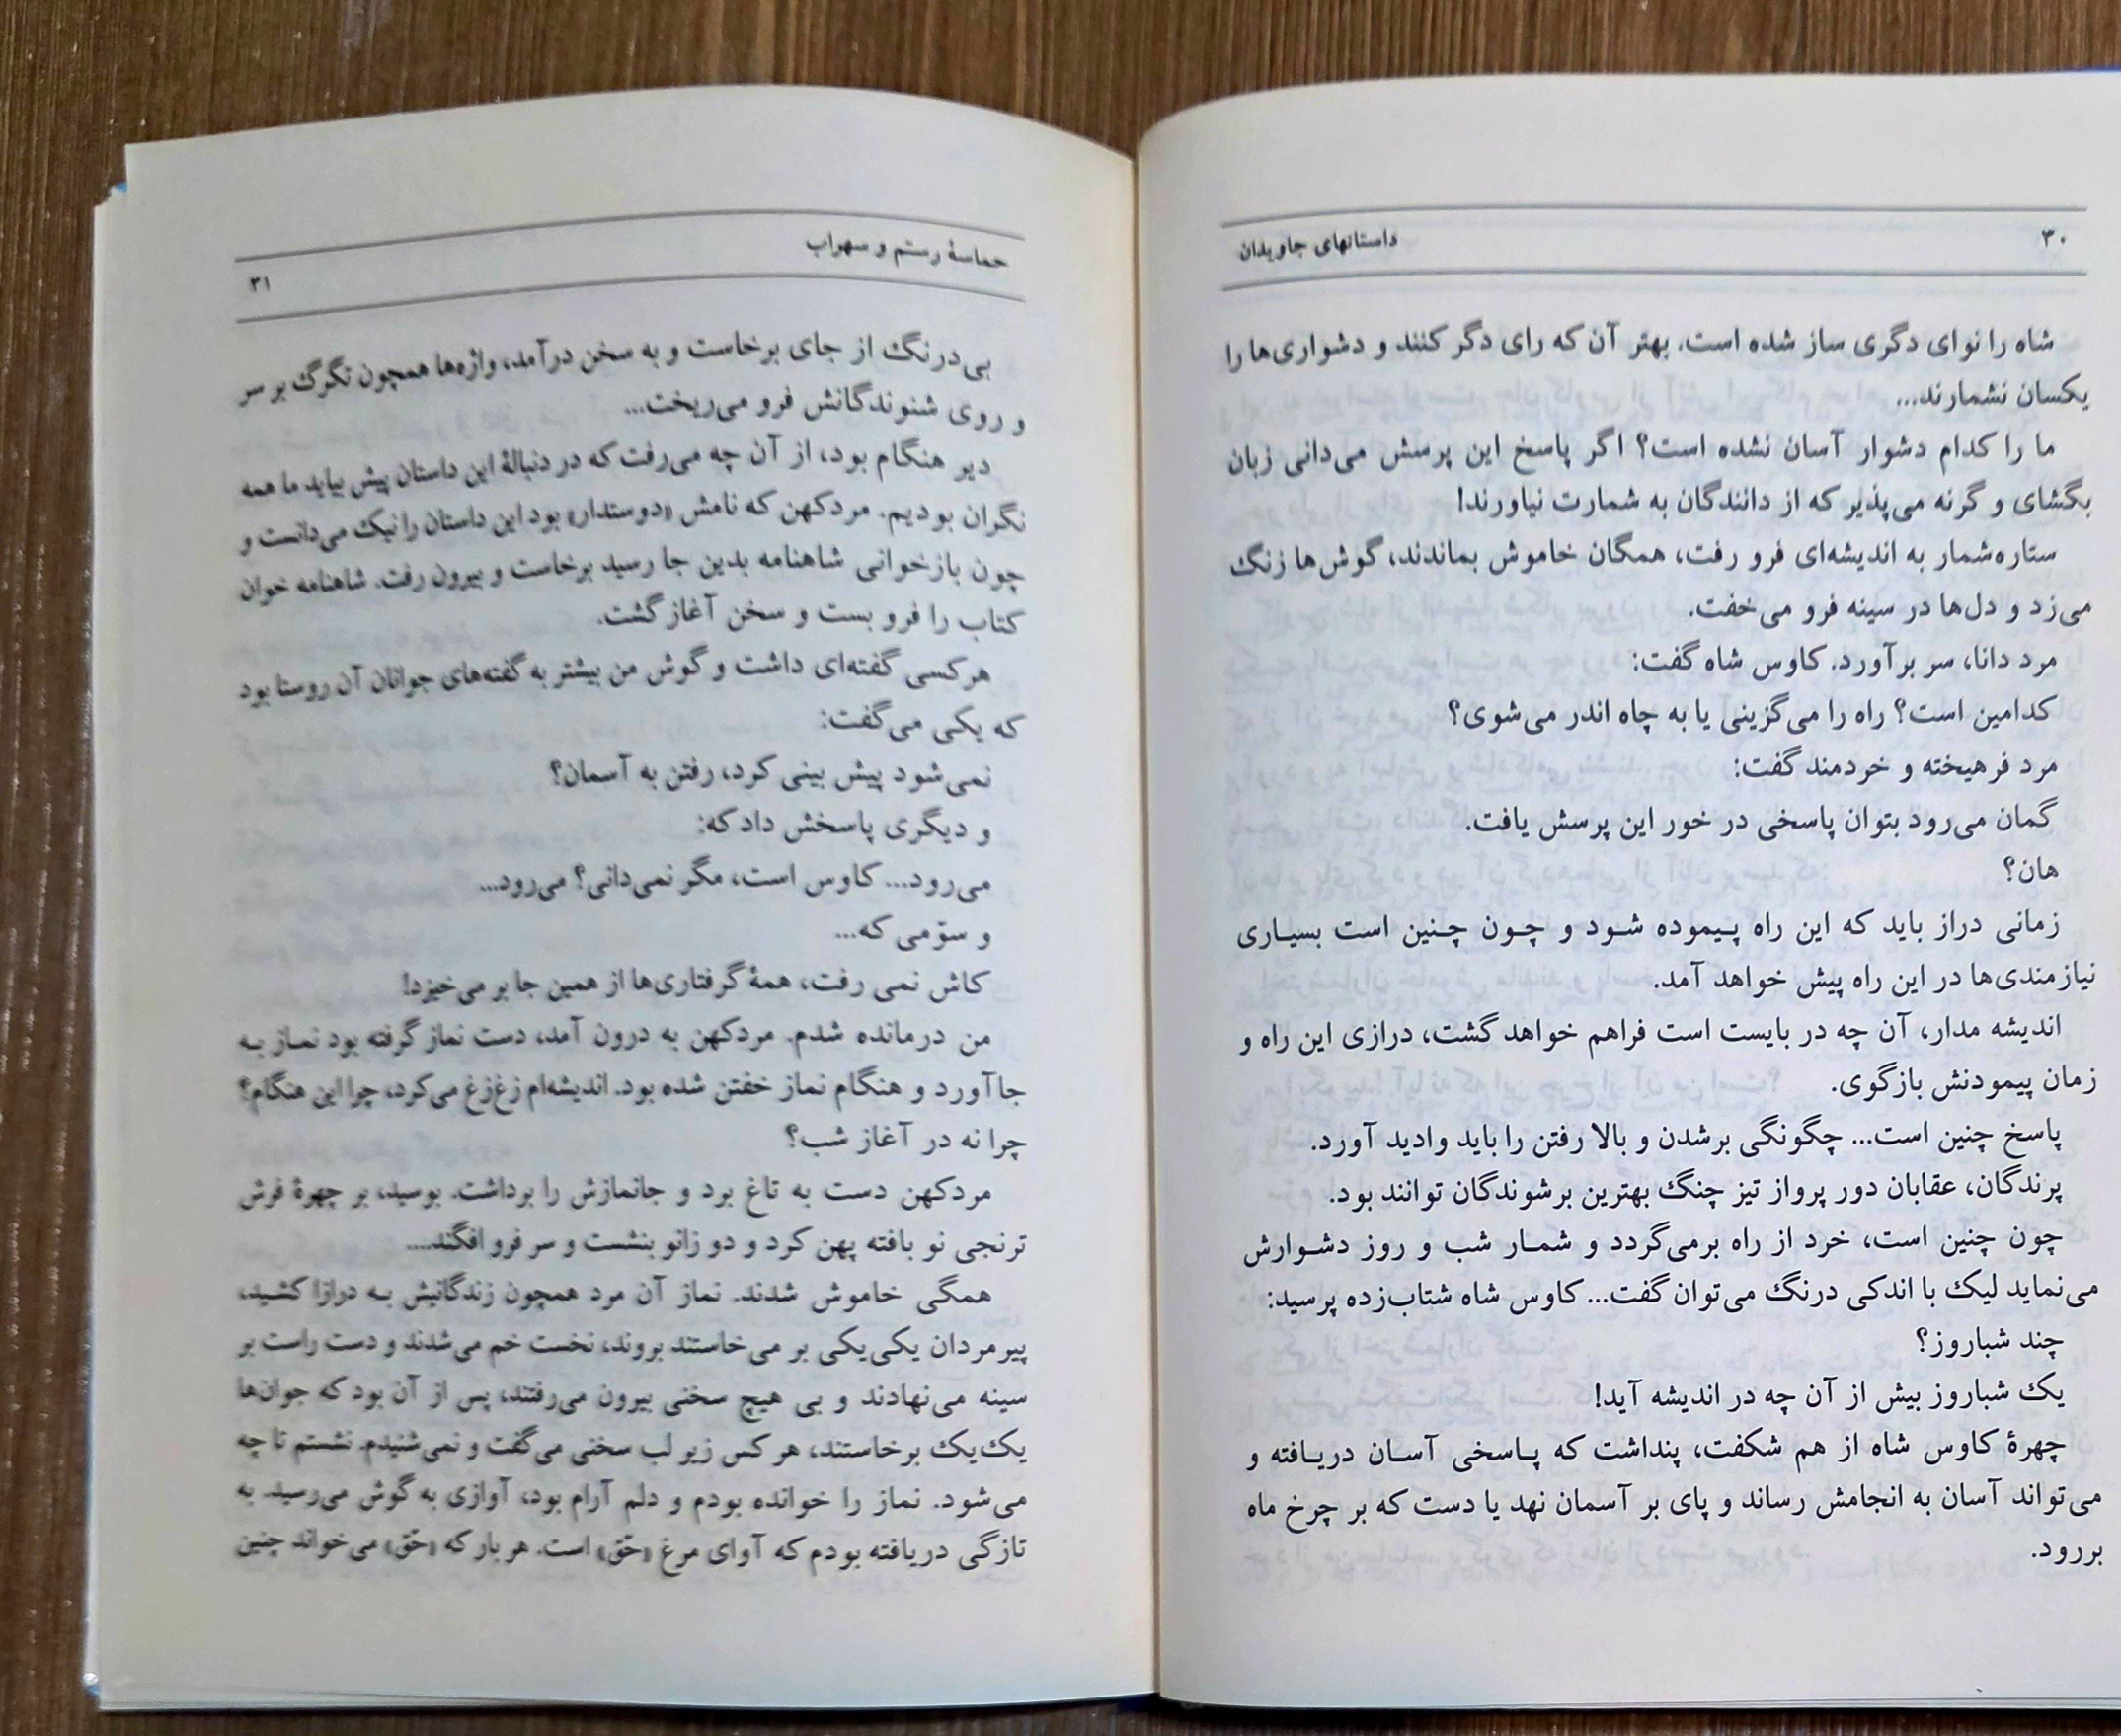 ۳۰
داستانهای جاویدان
شاه را نوای دگری ساز شده است. بهتر آن که رای دگر کنند و دشواری‌ها را
یکسان نشمارند...
ما را کدام دشوار آسان نشده است؟ اگر پاسخ این پرسش می‌دانی زبان
بگشای و گرنه می‌پذیر که از دانندگان به شمارت نیاورند!
ستاره‌شمار به اندیشه‌ای فرو رفت، همگان خاموش بماندند، گوش‌ها زنگ
می‌زد و دل‌ها در سینه فرو می‌خفت.
مرد دانا، سر برآورد. کاوس شاه گفت:
کدامین است؟ راه را می‌گزینی یا به چاه اندر می‌شوی؟
مرد فرهیخته و خردمند گفت:
گمان می‌رود بتوان پاسخی در خور این پرسش یافت.
هان؟
زمانی دراز باید که این راه پیموده شود و چون چنین است بسیاری
نیازمندی‌ها در این راه پیش خواهد آمد.
اندیشه مدار، آن چه در بایست است فراهم خواهد گشت، درازی این راه و
زمان پیمودنش بازگوی.
پاسخ چنین است... چگونگی برشدن و بالا رفتن را باید وادید آورد.
پرندگان، عقابان دور پرواز تیز چنگ بهترین برشوندگان توانند بود.
چون چنین است، خرد از راه برمی‌گردد و شمار شب و روز دشوارش
می‌نماید لیک با اندکی درنگ می‌توان گفت... کاوس شاه شتاب‌زده پرسید:
چند شباروز؟
یک شباروز بیش از آن چه در اندیشه آید!
چهرهٔ کاوس شاه از هم شکفت، پنداشت که پاسخی آسان دریافته و
می‌تواند آسان به انجامش رساند و پای بر آسمان نهد یا دست که بر چرخ ماه
بررود.
حماسهٔ رستم و سهراب
۳۱
بی‌درنگ از جای برخاست و به سخن درآمد، واژه‌ها همچون تگرگ بر سر
و روی شنوندگانش فرو می‌ریخت...
دیر هنگام بود، از آن چه می‌رفت که در دنبالهٔ این داستان پیش بیاید ما همه
نگران بودیم. مردکهن که نامش «دوستدار» بود این داستان را نیک می‌دانست و
چون بازخوانی شاهنامه بدین جا رسید برخاست و بیرون رفت. شاهنامه خوان
کتاب را فرو بست و سخن آغاز گشت.
هرکسی گفته‌ای داشت و گوش من بیشتر به گفته‌های جوانان آن روستا بود
که یکی می‌گفت:
نمی‌شود پیش بینی کرد، رفتن به آسمان؟
و دیگری پاسخش داد که:
می‌رود... کاوس است، مگر نمی‌دانی؟ می‌رود...
و سوّمی که...
کاش نمی رفت، همهٔ گرفتاری‌ها از همین جا بر می‌خیزد!
من درمانده شدم. مردکهن به درون آمد، دست نماز گرفته بود نماز به
جا آورد و هنگام نماز خفتن شده بود. اندیشه‌ام زغ‌زغ می‌کرد، چرا این هنگام؟
چرا نه در آغاز شب؟
مردکهن دست به تاغ برد و جانمازش را برداشت. بوسید، بر چهرهٔ فرش
ترنجی نو بافته پهن کرد و دو زانو بنشست و سر فرو افگند....
همگی خاموش شدند. نماز آن مرد همچون زندگانیش به درازا کشید،
پیرمردان یکی‌یکی بر می‌خاستند بروند، نخست خم می‌شدند و دست راست بر
سینه می‌نهادند و بی هیچ سخنی بیرون می‌رفتند، پس از آن بود که جوان‌ها
یک‌یک برخاستند، هر کس زیر لب سخنی می‌گفت و نمی‌شنیدم. نشستم تا چه
می‌شود. نماز را خوانده بودم و دلم آرام بود، آوازی به گوش می‌رسید. به
تازگی دریافته بودم که آوای مرغ «حّق» است. هر بار که «حّق» می‌خواند چنین